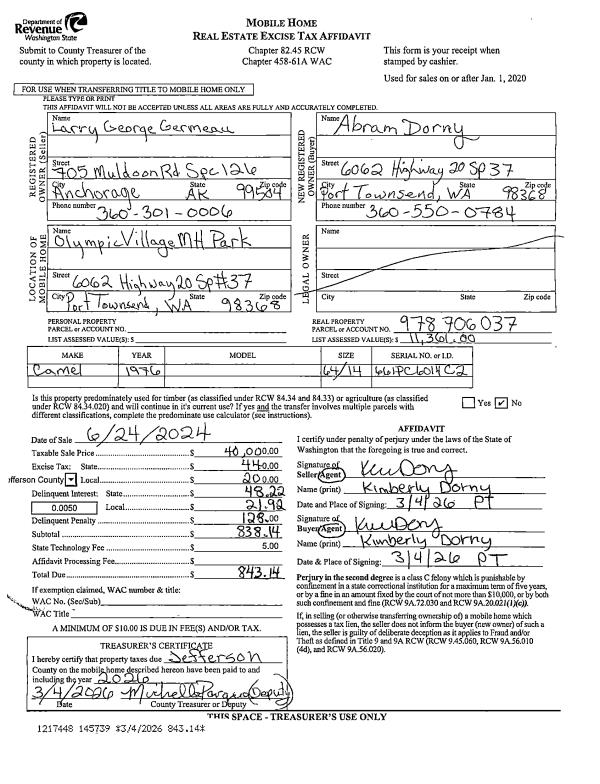 Department of
Revenue
Washington State
MOBILE HOME
REAL ESTATE EXCISE TAX AFFIDAVIT
Submit to County Treasurer of the
county in which property is located.
Chapter 82.45 RCW
Chapter 458-61A WAC
This form is your receipt when
stamped by cashier.
Used for sales on or after Jan. 1, 2020
FOR USE WHEN TRANSFERRING TITLE TO MOBILE HOME ONLY
PLEASE TYPE OR PRINT
THIS AFFIDAVIT WILL NOT BE ACCEPTED UNLESS ALL AREAS ARE FULLY AND ACCURATELY COMPLETED.
REGISTERED OWNER (Seller)
Name
Larry George Germeau
Street
705 Muldoon Rd Spc 126
City State Zip code
Anchorage AK 99504
Phone number 360-301-0006
NEW REGISTERED OWNER (Buyer)
Name
Abram Dorny
Street
6062 Highway 20 SP 37
City State Zip code
Port Townsend, WA 98368
Phone number
360-550-0784
LOCATION OF MOBILE HOME
Name
Olympic Village MH Park
Street
6062 Highway 20 Sp#37
City State Zip code
Port Townsend, WA 98368
LEGAL OWNER
Name
Street
City State Zip code
PERSONAL PROPERTY
PARCEL or ACCOUNT NO.
LIST ASSESSED VALUE(S): $
REAL PROPERTY
PARCEL or ACCOUNT NO. 978 706 037
LIST ASSESSED VALUE(S): $ 11,361.00
MAKE YEAR MODEL SIZE SERIAL NO. or I.D.
Camel 1976 64/14 661PC6014C2
Is this property predominately used for timber (as classified under RCW 84.34 and 84.33) or agriculture (as classified
under RCW 84.34.020) and will continue in it's current use? If yes and the transfer involves multiple parcels with
different classifications, complete the predominate use calculator (see instructions).
Yes ✓ No
Date of Sale 6/24/2024
Taxable Sale Price $ 40,000.00
Excise Tax: State $ 440.00
Jefferson County Local $ 200.00
Delinquent Interest: State $ 48.22
0.0050 Local $ 21.92
Delinquent Penalty $ 128.00
Subtotal $ 838.14
State Technology Fee $ 5.00
Affidavit Processing Fee $
Total Due $ 843.14
If exemption claimed, WAC number & title:
WAC No. (Sec/Sub)
WAC Title
A MINIMUM OF $10.00 IS DUE IN FEE(S) AND/OR TAX.
AFFIDAVIT
I certify under penalty of perjury under the laws of the State of
Washington that the foregoing is true and correct.
Signature of
Seller/Agent Kim Dorny
Name (print) Kimberly Dorny
Date and Place of Signing: 3/4/26 PT
Signature of
Buyer/Agent Kim Dorny
Name (print) Kimberly Dorny
Date & Place of Signing: 3/4/26 PT
Perjury in the second degree is a class C felony which is punishable by
confinement in a state correctional institution for a maximum term of five years,
or by a fine in an amount fixed by the court of not more than $10,000, or by both
such confinement and fine (RCW 9A.72.030 and RCW 9A.20.021(1)(c)).
If, in selling (or otherwise transferring ownership of) a mobile home which
possesses a tax lien, the seller does not inform the buyer (new owner) of such a
lien, the seller is guilty of deliberate deception as it applies to Fraud and/or
Theft as defined in Title 9 and 9A RCW (RCW 9.45.060, RCW 9A.56.010
(4d), and RCW 9A.56.020).
TREASURER'S CERTIFICATE
I hereby certify that property taxes due Jefferson
County on the mobile home described hereon have been paid to and
including the year 2026
3/4/2026 (Deputy)
Date County Treasurer or Deputy
THIS SPACE - TREASURER'S USE ONLY
1217448 145739 *3/4/2026 843.14*